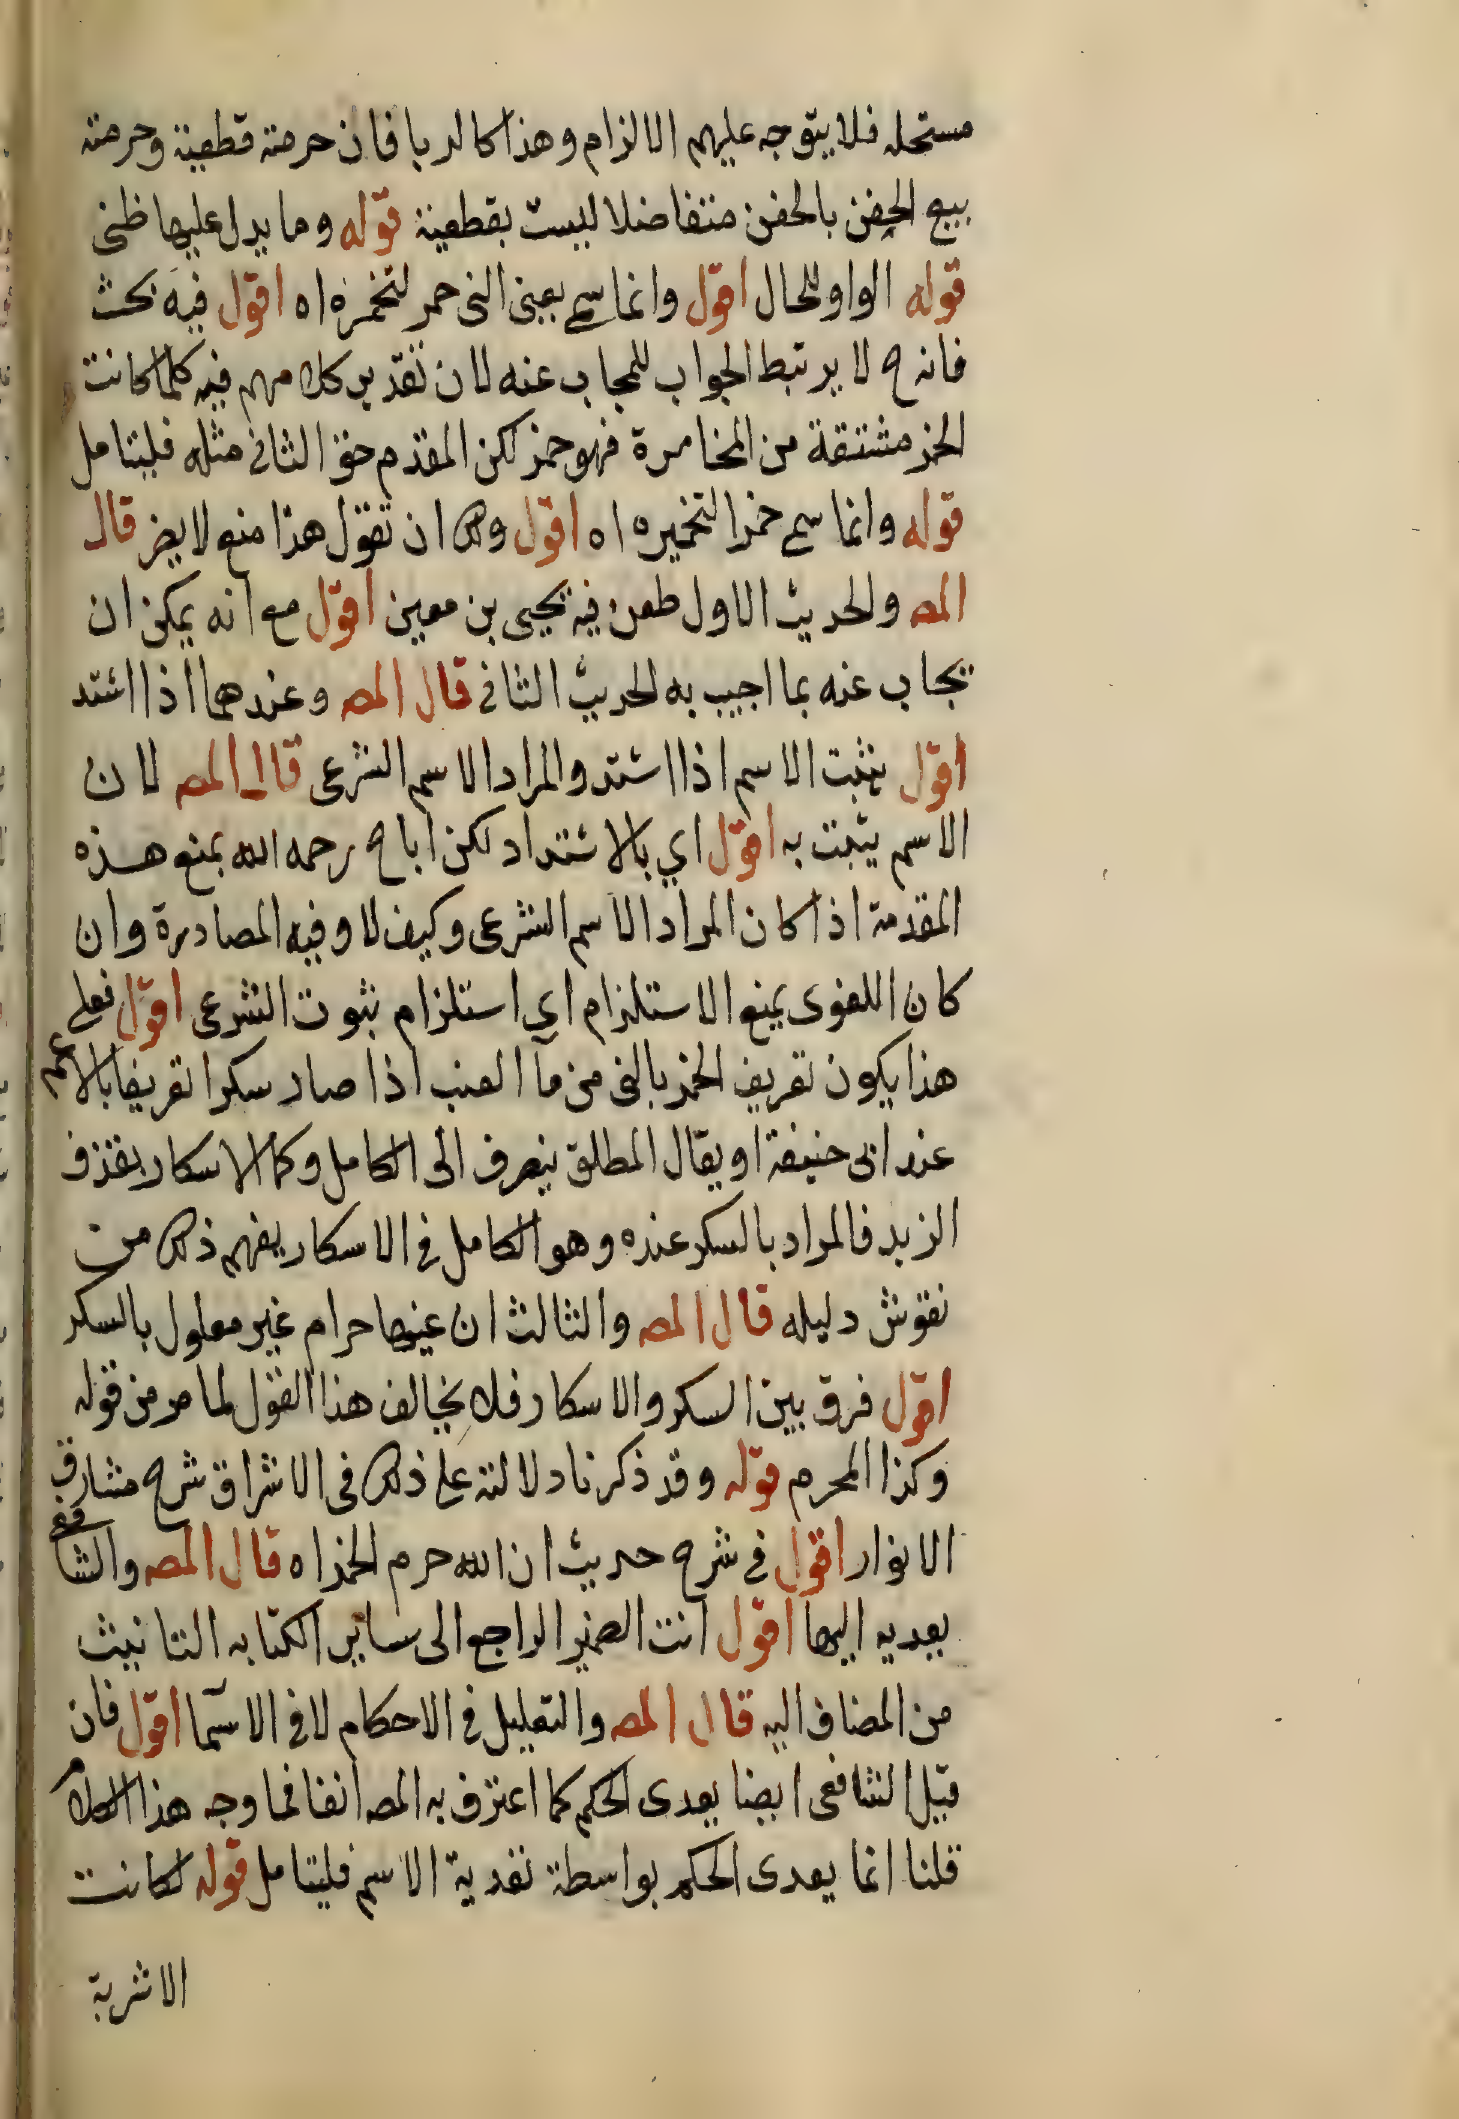 مستحله فلا يتوجه عليهم الالزام وهذا كالربا فان حرمته قطعية وحرمة
بيع الحفن بالحفن متفاضلا ليست بقطعية قوله وما يدل عليها ظنى
قوله الواو للحال اقول وانما سمى يعنى النى خمر لتخمره اه اقول فيه بحث
فانه ح لا يرتبط الجواب للمجاب عنه لان تقدير كلامهم فيه كلما كانت
الخمر مشتقة من المخامرة فهو خمر لكن المقدم حق الثانى مثله فليتامل
قوله وانما سمى خمرا لتخميره اه اقول ولك ان تقول هذا منع لا يضر قال
المص والحديث الاول طعن فيه يحيى بن معين اقول مع انه يمكن ان
يجاب عنه بما اجيب به الحديث الثانى قال المص وعندهما اذا اشتد
اقول يثبت الاسم اذا اشتد والمراد الاسم الشرعى قال المص لان
الاسم يثبت به اقول اي بالاشتداد لكن اباح رحمه الله يمنع هذه
المقدمة اذا كان المراد الاسم الشرعى وكيف لا وفيه المصادرة وان
كان اللغوى يمنع الاستلزام اي استلزام ثبوت الشرعى اقول فعلى
هذا يكون تعريف الخمر بالنى من مآ العنب اذا صار سكرا تعريفا بالاعم
عند ابى حنيفة او يقال المطلق ينصرف الى الكامل وكمال الاسكار بقذف
الزبد فالمراد بالسكر عنده وهو الكامل فى الاسكار يفهم ذلك من
نقوش دليله قال المص والثالث ان عينها حرام غير معلول بالسكر
اقول فرق بين السكر والاسكار فلا يخالف هذا القول لما مر من قوله
وكذا المحرم قوله وقد ذكرنا دلالته على ذلك فى الاشراق شرح مشارق
الانوار اقول فى شرح حديث ان الله حرم الخمر اه قال المص والشافعى
يعديه اليها اقول انث الضمير الراجع الى سائر اكتسابه التانيث
من المضاف اليه قال المص والتعليل فى الاحكام لا فى الاسمآ اقول فان
قيل الشافعى ايضا يعدى الحكم كما اعترف به المص انفا فما وجه هذا الكلام
قلنا انما يعدى الحكم بواسطة تعدية الاسم فليتامل قوله لكانت
الاشربة